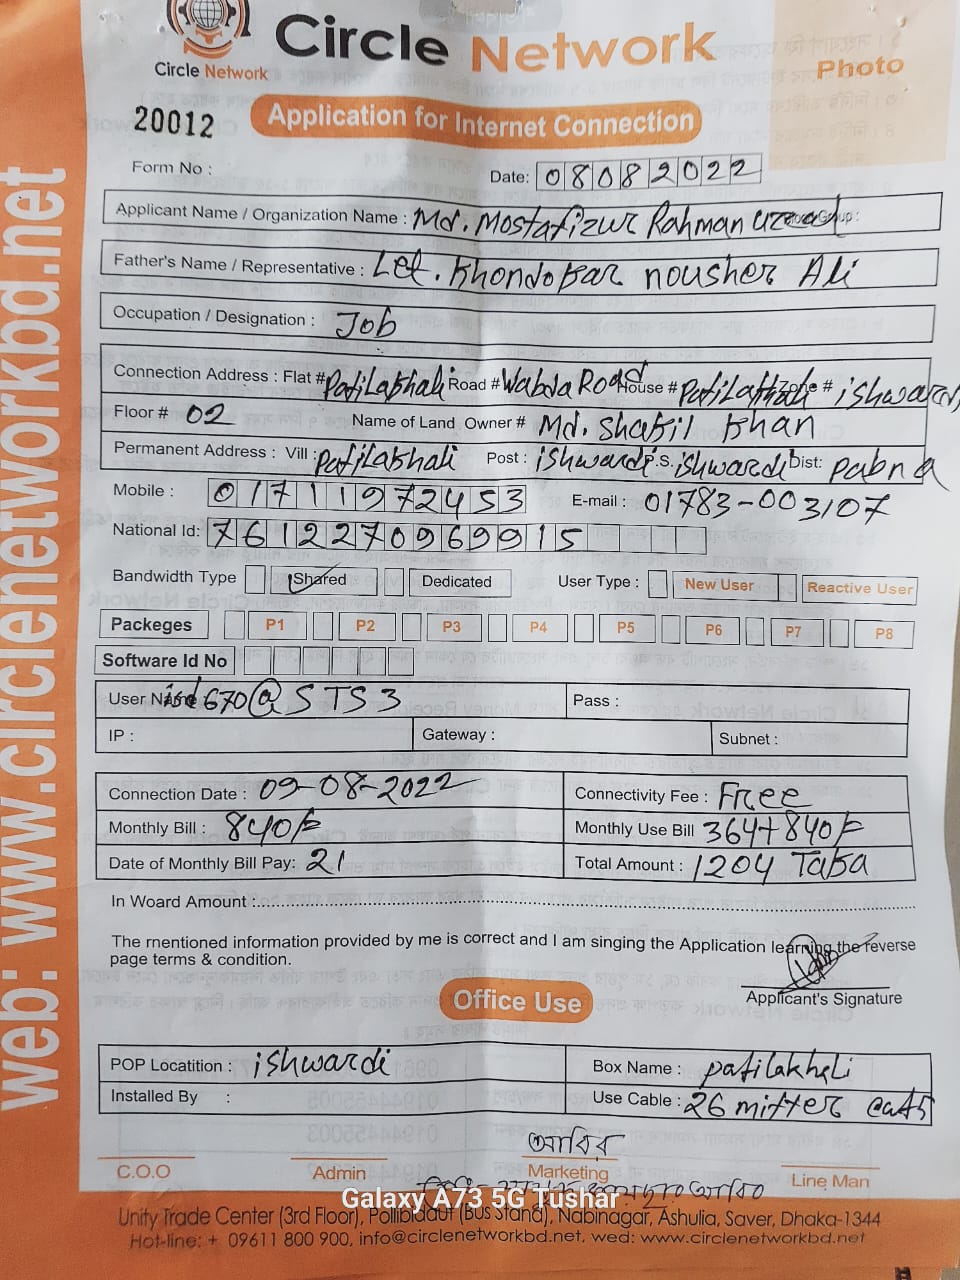 Circle Network
Circle Network
Photo
20012
Application for Internet Connection
Form No :
Date: 08082022
Applicant Name / Organization Name : Md. Mostafizur Rahman
Father's Name / Representative : Let. Khondokar nousher Ali
Occupation / Designation : Job
Connection Address : Flat # Patilakhali Road # Wabda Road House # Patilakhali Zone # ishwardi
Floor # 02 Name of Land Owner # Md. Shakil Khan
Permanent Address : Vill : Patilakhali Post : ishwardi P.S. ishwardi Dist: pabna
Mobile : 01711972453 E-mail : 01783-003107
National Id: 7612270969915
Bandwidth Type Shared Dedicated User Type : New User Reactive User
Packeges P1 P2 P3 P4 P5 P6 P7 P8
Software Id No
User Name isd670@STS3 Pass :
IP : Gateway : Subnet :
Connection Date : 09-08-2022 Connectivity Fee : Free
Monthly Bill : 840/= Monthly Use Bill 364+840/=
Date of Monthly Bill Pay: 21 Total Amount : 1204 Taka
In Woard Amount :
The mentioned information provided by me is correct and I am singing the Application learning the reverse
page terms & condition.
Applicant's Signature
Office Use
POP Locatition : ishwardi Box Name : patilakhali
Installed By : Use Cable : 26 mitter cat5
আবির
C.O.O Admin Marketing Line Man
Galaxy A73 5G Tushar
Unity Trade Center (3rd Floor), Pollibiddut (Bus Stand), Nabinagar, Ashulia, Saver, Dhaka-1344
Hot-line: + 09611 800 900, info@circlenetworkbd.net, wed: www.circlenetworkbd.net
web: www.circlenetworkbd.net